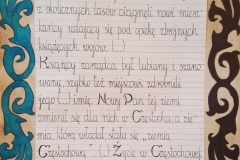 z okolicznych lasów ciągnęli nowi miesz-
kańcy udający się pod opiekę zbrojnych
książęcych wojów. (...)
Książęcy zarządca był lubiany i szano-
wany, szybko też miejscowi zdrobnili
jego (...) imię. Nowy Pan tej ziemi
zmienił się dla nich w Częstocha, a zie-
mia, którą władał stała się „ziemią
Częstochową". (...) Życie w Częstochowej